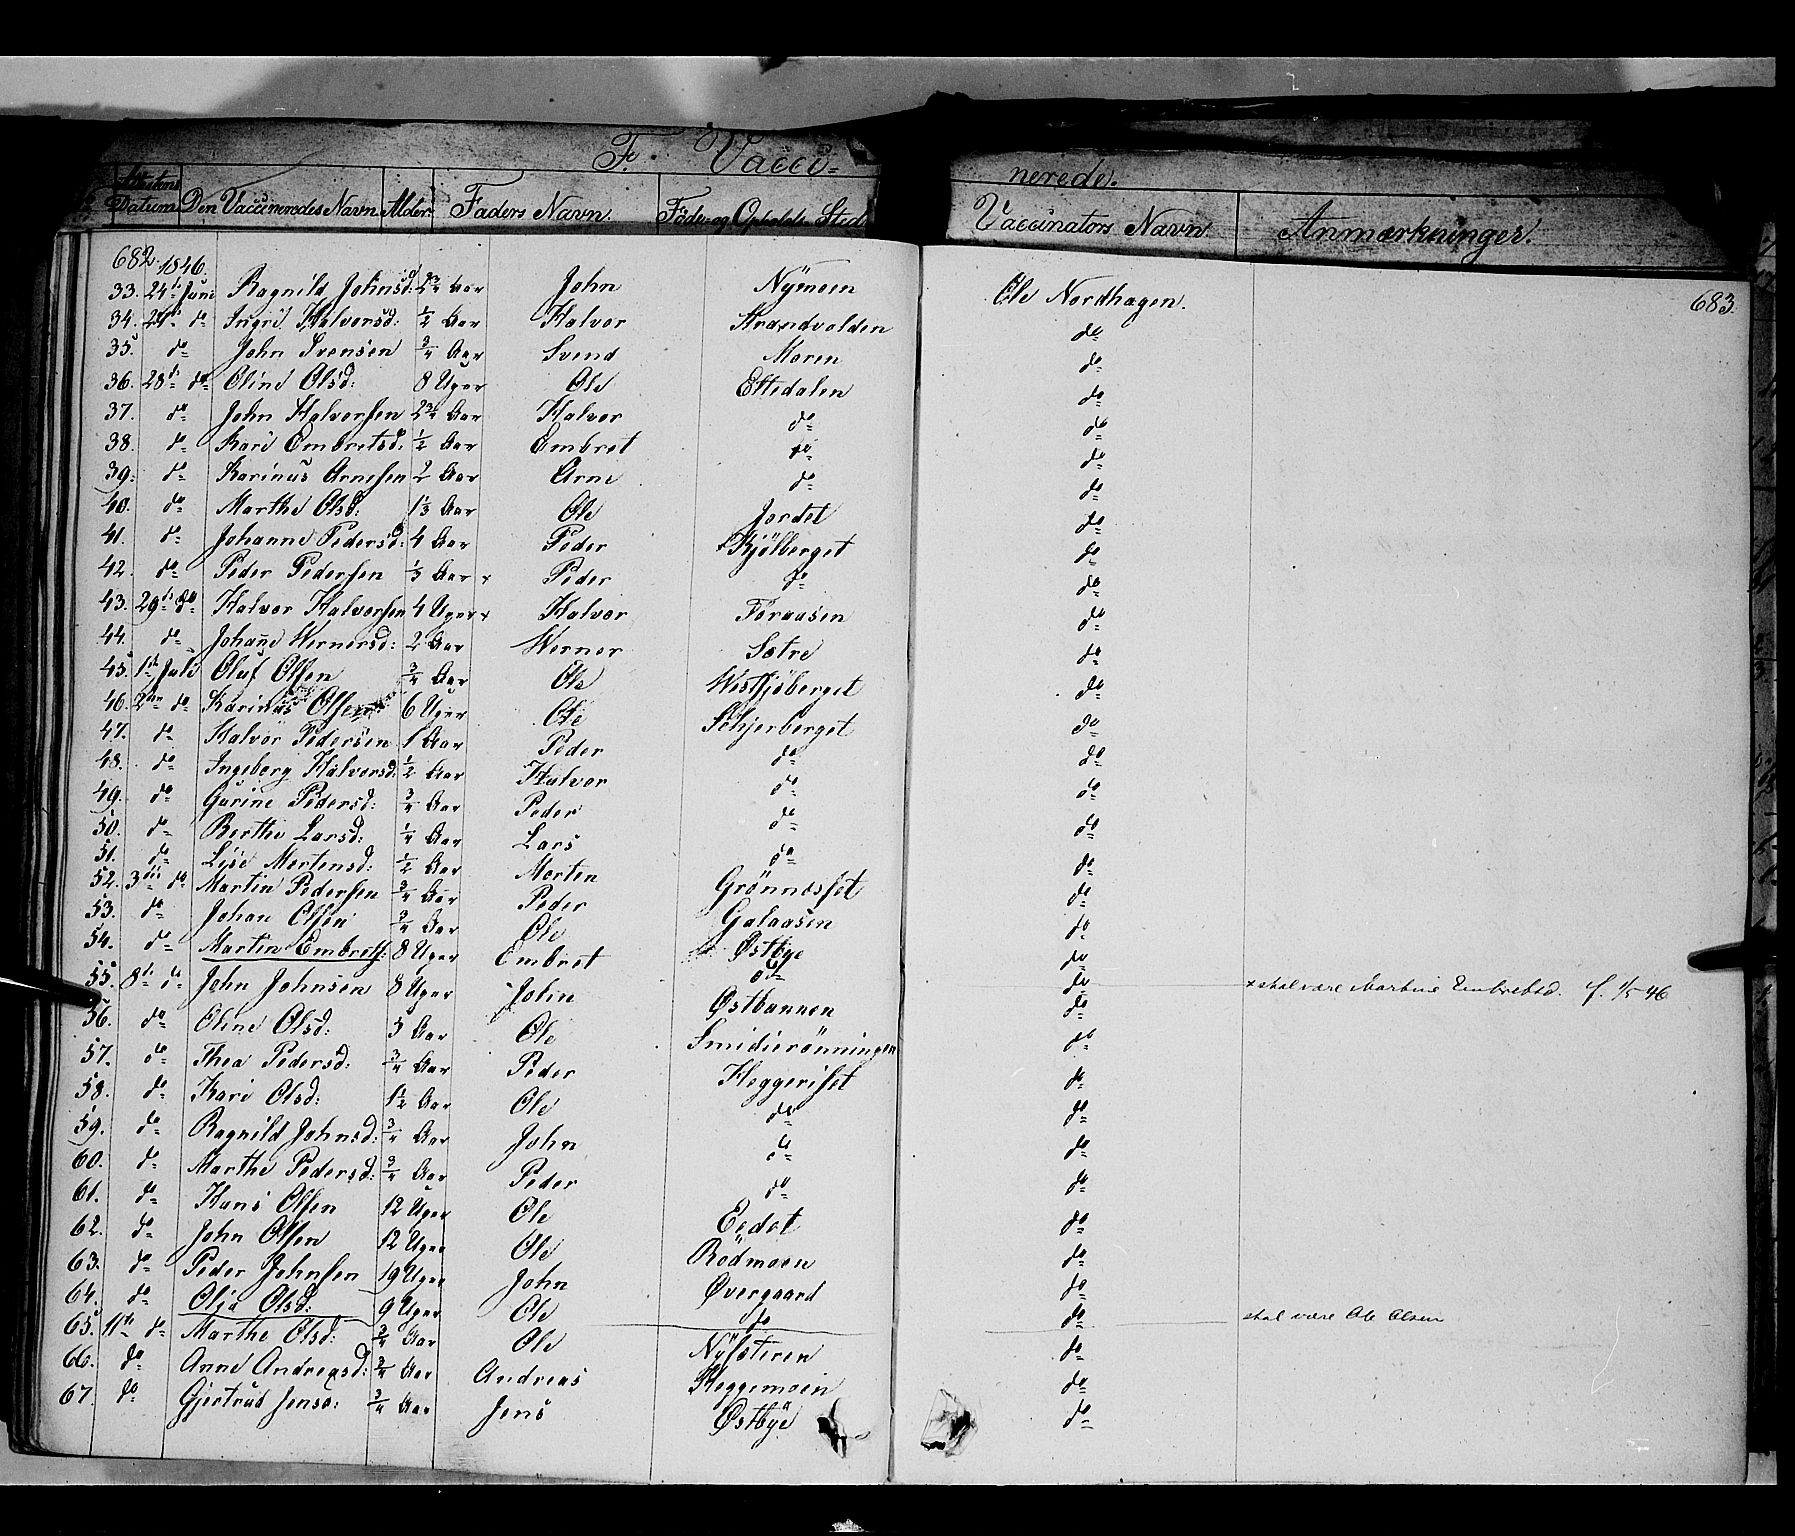 F. Vacci- nerede.
Attestens Datum Den Vaccineredes Navn. Alder. Faders Navn. Føde- og Opholds Sted Vaccinators Navn. Anmærkninger.
682. 1846. 683.
33. 24de Juni Ragnild Johnsd: 2 3/4 Aar John Nÿmoen Ole Nordhagen.
34. 24de do Ingri Halvorsd: 1/2 Aar Halvor Strandvolden do
35. do John Svensen 3/4 Aar Svend Moren do
36. 28de do Eline Olsd: 8 Uger Ole Eltedalen do
37. do John Halvorsen 2 3/4 Aar Halvor do do
38. do Kari Embretsd: 1/2 Aar Embret do do
39. do Karinus Arnesen 2 Aar Arne do do
40. do Marthe Olsd: 1 1/3 Aar Ole Jordet do
41. do Johanne Pedersd: 4 Aar Peder Kjølberget do
42. do Peder Pedersen 1/3 Aar Peder do do
43. 29de do Halvor Halvorsen 4 Uger Halvor Foraasen do
44. do Johane Wernersd: 2 Aar Werner Sætre do
45. 1ste Juli Oluf Olsen 3/4 Aar Ole Westsjøberget do
46. 2den do Olsen 6 Uger Ole Schjerberget do
47. do Halvor Pedersen 1 Aar Peder do do
48. do Ingeborg Halvorsd: 1/2 Aar Halvor do do
49. do Gurine Pedersd: 3/4 Aar Peder do do
50. do Berthe Larsd: 1/4 Aar Lars do do
51. do Lise Mortensd: 1/2 Aar Morten do do
52. 3die do Martin Pedersen 3/4 Aar Peder Grønnæsset do
53. do Johan Olsen 3/4 Aar Ole Galaasen do
54. do Martin Embrets: 8 Uger Embret Østbye do × skal være Martine Embretsd. f. 1/5 46
55. 8de do John Johnsen 8 Uger John do do
56. do Oline Olsd: 5 Aar Ole Østbannen do
57. do Thea Pedersd: 3/4 Aar Peder Smidierønningen do
58. do Kari Olsd: 1 1/2 Aar Ole Heggeriset do
59. do Ragnild Johnsd: 3/4 Aar John do do
60. do Marthe Pedersd: 3/4 Aar Peder do do
61. do Hans Olsen 12 Uger Ole do do
62. do John Olsen 12 Uger Ole Eedet do
63. do Peder Johnsen 19 Uger John Rødmoen do
64. do Olea Olsd: 9 Uger Ole Øvergaard do skal være Ole Olsen
65. 11te do Marthe Olsd: 3/4 Aar Ole do do
66. do Anne Andreasd: 3/4 Aar Andreas Nÿsæteren do
67. do Gjertrud Jensd: 3/4 Aar Jens Heggemoen do
Østbÿe do